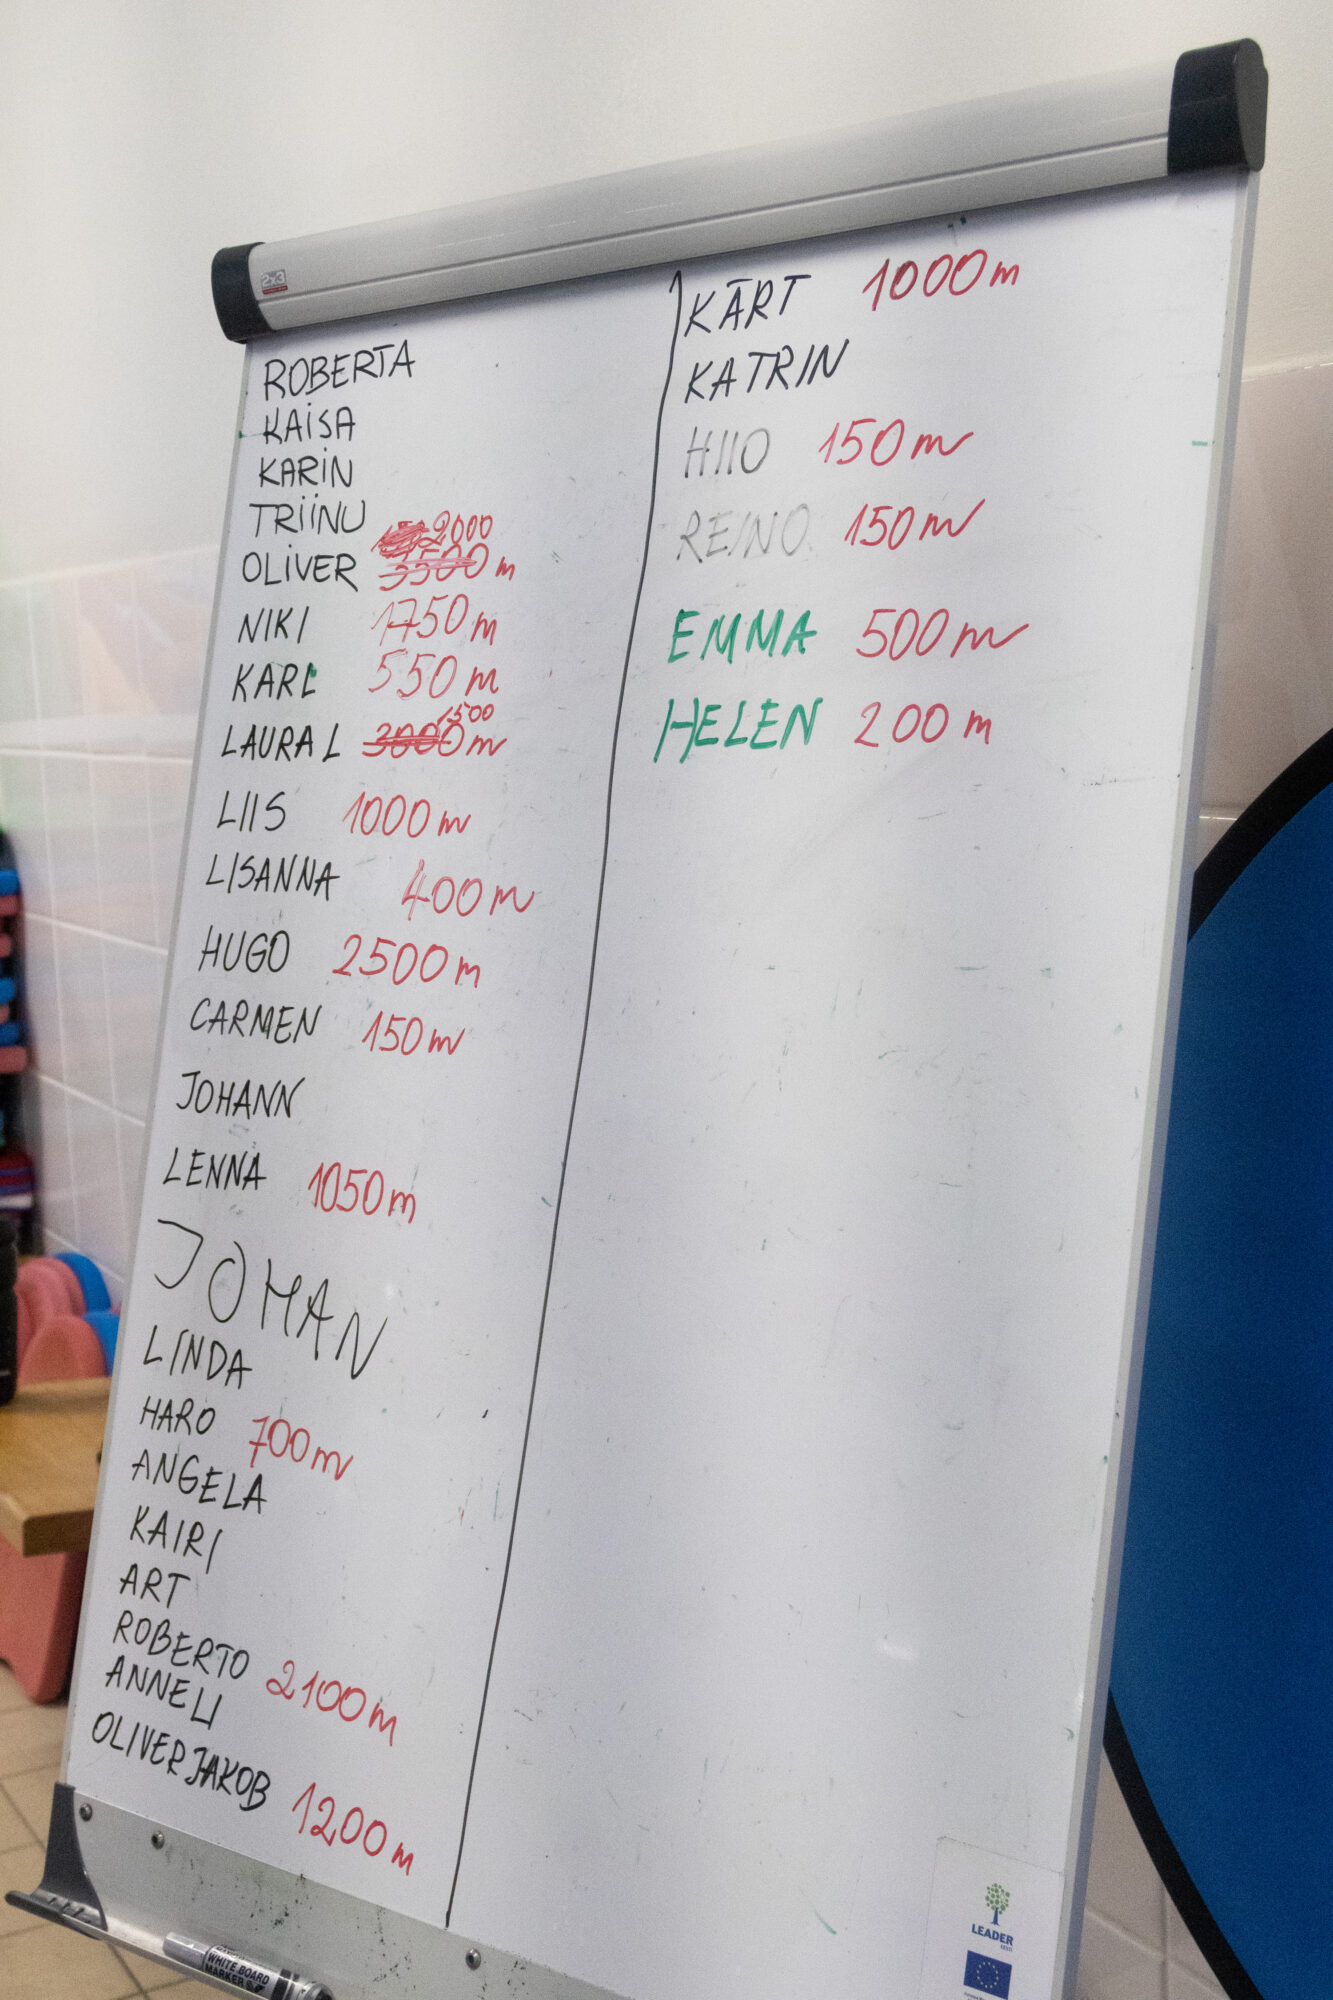 2x3
ROBERTA
KAiSA
KARiN
TRiiNU
2000
OLiVER 3500 m
NIKI 1750 m
KARL 550 m
1500
LAURA L 3000 m
LIIS 1000 m
LISANNA 400 m
HUGO 2500 m
CARMEN 150 m
JOHANN
LENNA 1050 m
JOHAN
LINDA
HARO 700 m
ANGELA
KAIRI
ART
ROBERTO 2100 m
ANNELI
OLIVER JAKOB 1200 m
KÄRT 1000 m
KATRIN
HIIO 150 m
REINO 150 m
EMMA 500 m
HELEN 200 m
LEADER
WHITE BOARD
MARKER